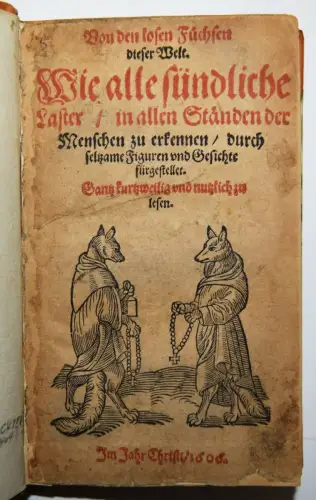 Von den losen Füchsen
dieser Welt.
Wie alle sündliche
Laster / in allen Ständen der
Menschen zu erkennen / durch
seltzame Figuren vnd Gesichte
fürgestellet.
Gantz kurtzweilig vnd nutzlich zu
lesen.
Im Jahr Christi / 1606.